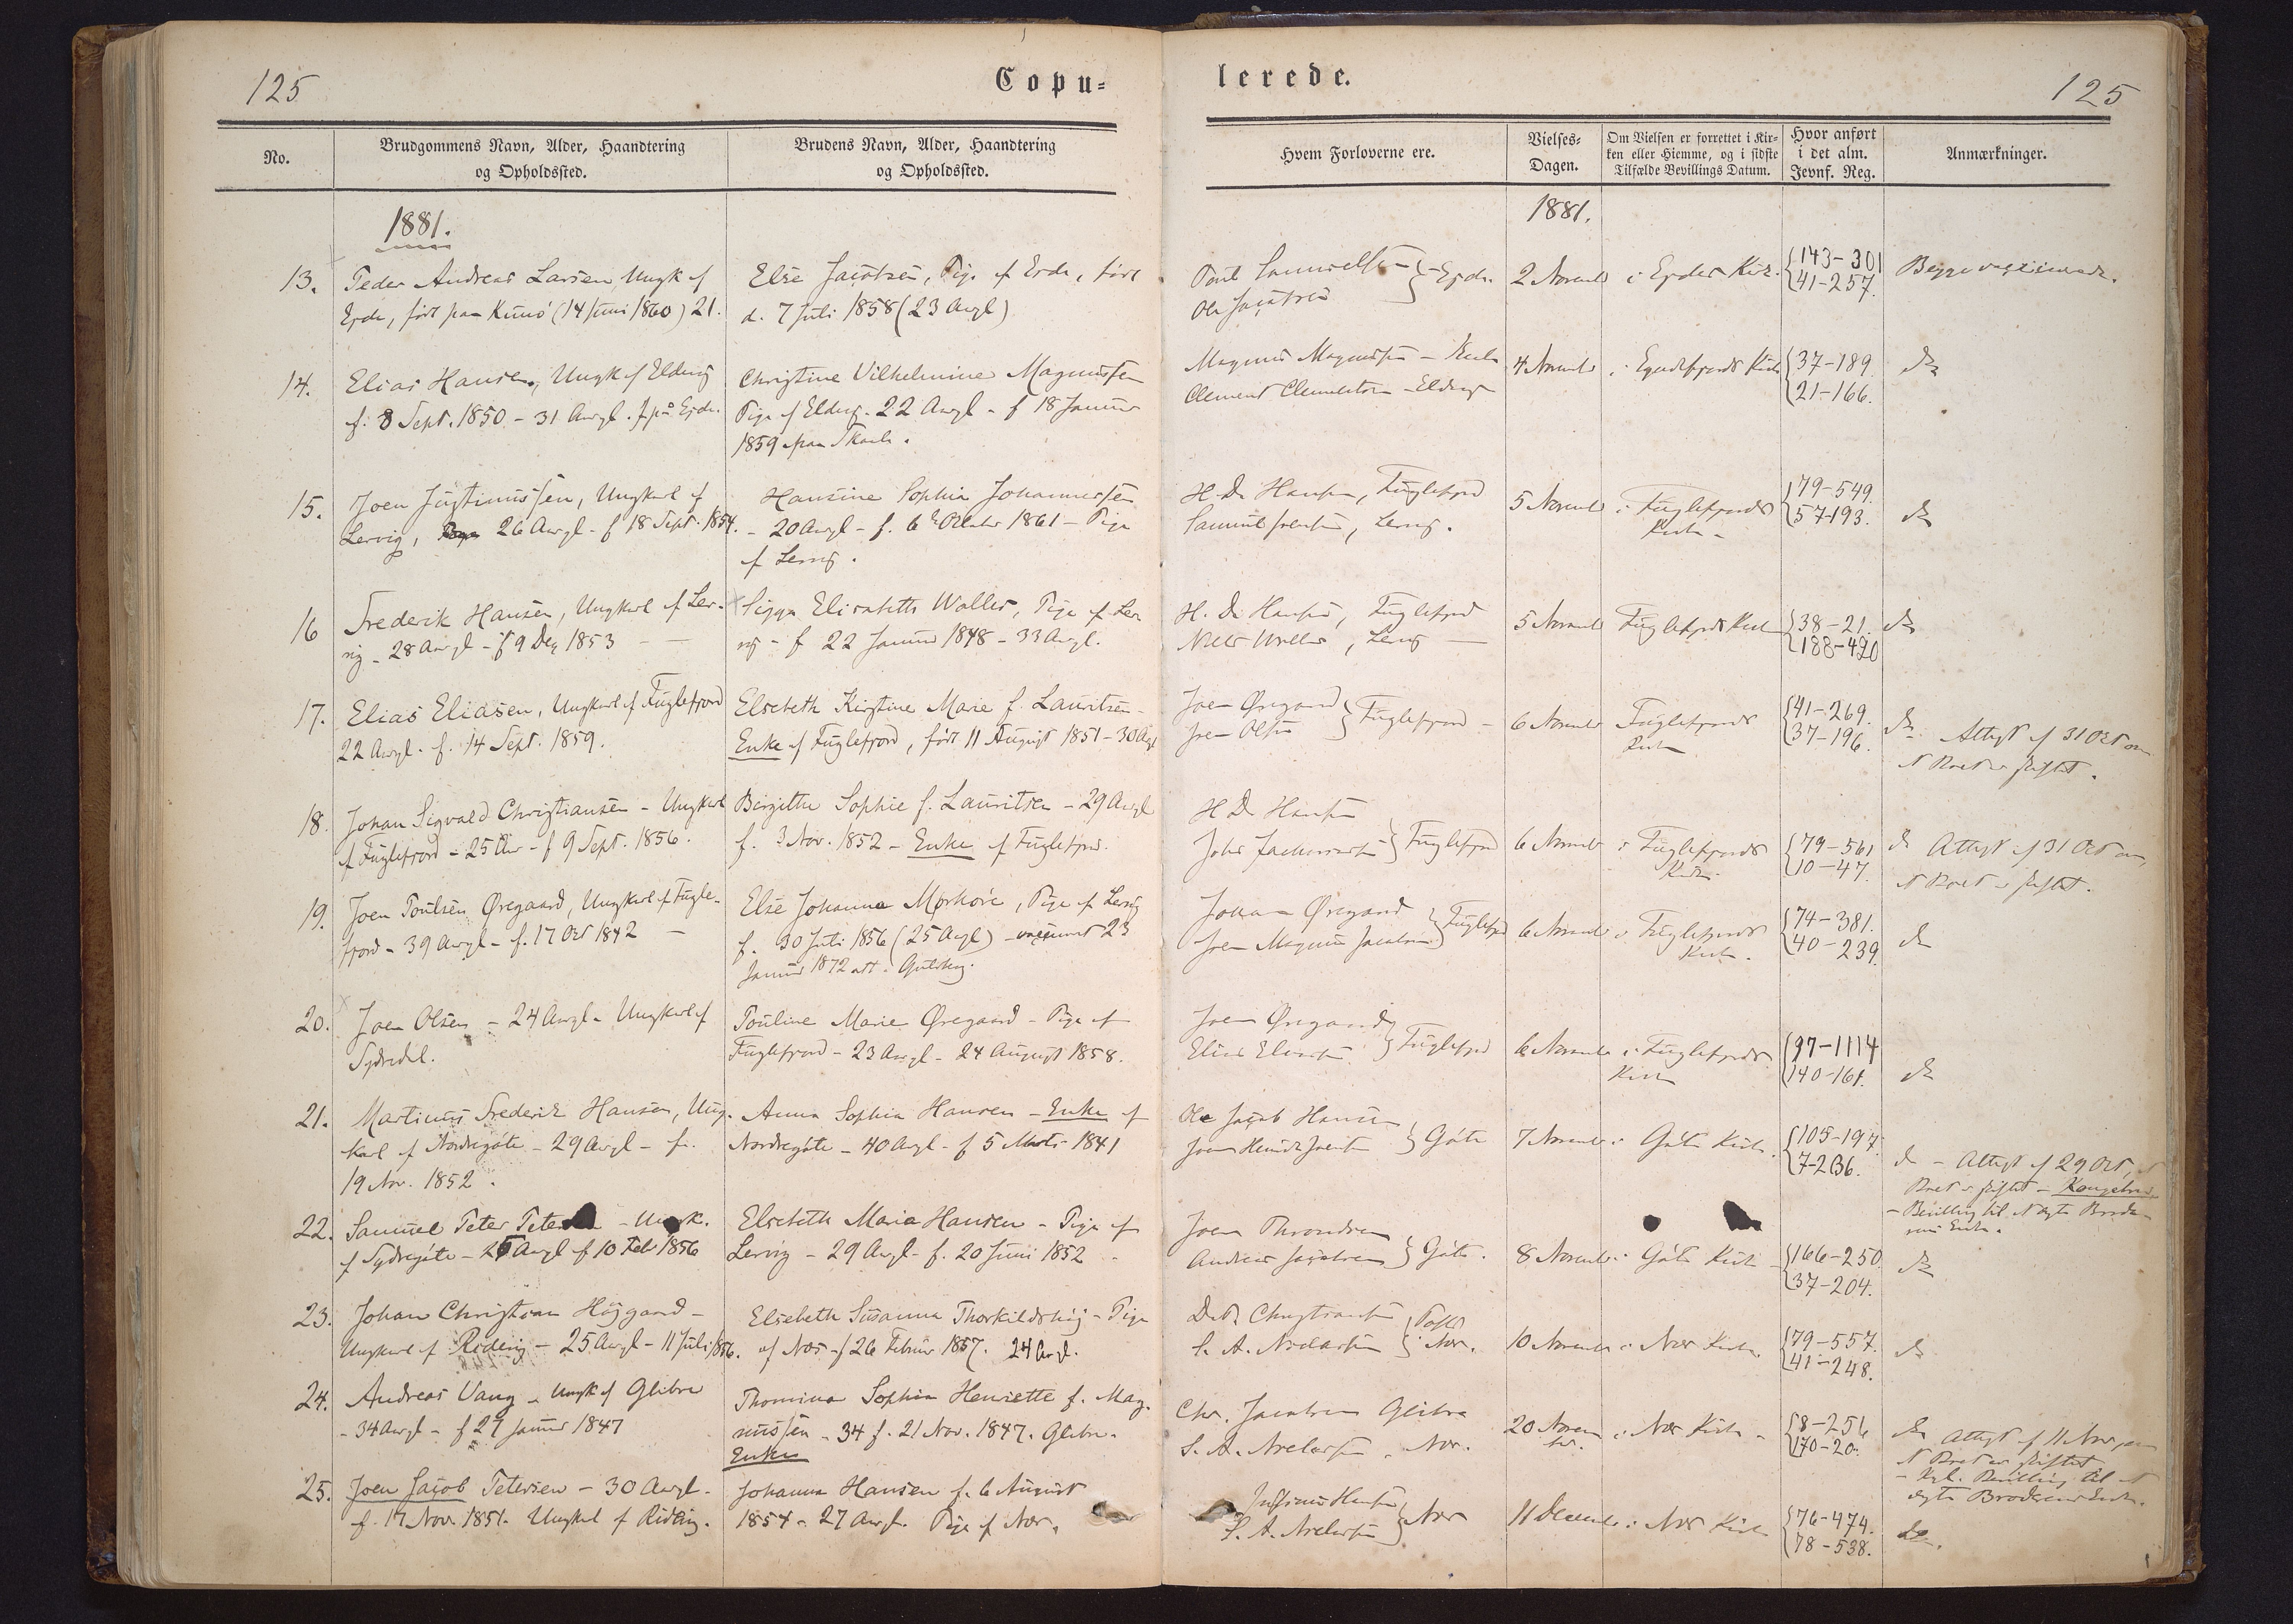 125
Copu-
lerede.
125
No.
Brudgommens Navn, Alder, Haandtering
og Opholdssted.
Brudens Navn, Alder, Haandtering
og Opholdssted.
Hvem Forloverne ere.
Vielses-
Dagen.
Om Vielsen er forrettet i Kir-
ken eller Hiemme, og i sidste
Tilfælde Bevillings Datum.
Hvor anført
i det alm.
Jevnf. Reg.
Anmærkninger.
1881.
1881.
13.
Peder Andreas Larsen, Ungk. af
Ejde, født paa Kunø (14 Juni 1860) 21.
Else Jacobsen, Pige af Ejde, født
d. 7 Juli 1858 (23 Aargl)
Poul Samuelsen
Ole Jacobsen
Ejde.
2 Novemb
i Ejdes Kirk.
143-301
41-257.
Begge vaccinerede.
14.
Elias Hansen, Ungk af Eldevig
f. 8 Sept. 1850 - 31 Aargl. f. på Ejde.
Christine Vilhelmine Magnussen
Pige af Eldevig. 22 Aargl - f 18 Januar
1859 paa Skaale.
Magnus Magnussen - Skaale
Clement Clementsen - Eldevig
4 Novemb
i Kirke
37-189
21-166.
do
15.
Joen Justinussen, Ungkarl af
Lervig, 26 Aargl - f 18 Sept. 1854.
Hansine Sophia Johannessen
- 20 Aargl - f. 6 October 1861 - Pige
af Lervig.
H. D. Hansen, Fuglefjord
Samuel Joensen, Lervig.
5 Novemb
i Fuglefjords
Kirke -
79-549.
57-193.
do
16
Frederik Hansen, Ungkarl af Ler-
vig - 28 Aargl - f 9 Dec 1853
Sigga Elisabeth Weller, Pige af Ler
vig - f 22 Januar 1848 - 33 Aargl.
H. D. Hansen, Fuglefjord
Niels Weller, Lervig
5 Novemb
Fuglefjords Kirke
38-21.
188-420
do
17.
Elias Eliasen, Ungkarl af Fuglefjord
22 Aargl. f. 14 Sept. 1859.
Elsebeth Kirstine Marie f. Lauritsen -
Enke af Fuglefjord, født 11 August 1851 - 30 Aargl
Joen Øregaard
Joen Olsen
Fuglefjord -
6 Novemb
Fuglefjords
Kirke
41-269.
37-196.
do. Attest af 31 Oct om
at Boet er skiftet.
18.
Johan Sigvald Christiansen - Ungkarl
af Fuglefjord - 25 Aar - f 9 Sept. 1856.
Birgitthe Sophie f. Lauritsen - 29 Aargl
f. 3 Nov. 1852 - Enke af Fuglefjord.
H D Hansen
Fuglefjord
6 Novemb
i Fuglefjords
Kirke
79-561
10-47.
do Attest af 31 Oct om
at Boet er skiftet.
19.
Joen Poulsen Øregaard, Ungkarl af Fugle-
fjord - 39 Aargl - f. 17 Oct 1842 -
Else Johanne Mørkøre, Pige af Lervig
f. 30 Juli 1856 (25 Aargl) - vaccineret 23
Januar 1872 att.
Johan Øregaard
Joen Magnus Jacobsen
Fuglefjord
6 Novemb
i Fuglefjords
Kirke.
74-381.
40-239.
do
20.
Joen Olsen - 24 Aargl - Ungkarl af
Sydredal.
Pouline Marie Øregaard - Pige af
Fuglefjord - 23 Aargl - 24 August 1858.
Joen Øregaard
Elias Eliasen
Fuglefjord
6 Novemb
i Fuglefjords
Kirke
97-1114
140-161.
do
21.
Martinus Frederik Hansen, Ung-
karl af Nordregøte - 29 Aargl - f.
19 Nov. 1852.
Anna Sophia Hansen - Enke af
Nordregøte - 40 Aargl - f 5 Marts 1841
Ole Jacob Hansen
Joen Hendrik Joensen
Gøte
7 Novemb
i Gøte Kirke.
105-197.
7-236.
do - Attest af 29 Oct, at
Boet er skiftet - Kongebrev
- Bevilling til at ægte Broder-
ens Enke.
22.
Samuel Peter - Ungk.
af Sydregøte - 25 Aargl f 10 Feb 1856
Elsebeth Maria Hansen - Pige af
Lervig - 29 Aargl - f. 20 Juni 1852
Joen Throndsen
Andreas Jacobsen
Gøte.
8 Novemb
i Gøte Kirke
166-250
37-204.
do
23.
Johan Christian Højgaard -
Ungkarl af Ridevig - 25 Aargl - 11 Juli 1856.
Elsebeth Susanna Thorkildshøj - Pige
af Næs - f 26 Februar 1857. 24 Aargl.
D. P. Christiansen
S. A.
Toftir
Næs.
10 Novemb
i Næs Kirke.
79-557.
41-248.
do
24.
Andreas Vang - Ungk af Glibre
- 34 Aargl - f 27 Januar 1847
Thomina Sophia Henriette f. Mag-
nussen - 34 f. 21 Nov. 1847. Glibre.
Enke
Chr. Jacobsen Glibre
S. A. Næs.
20 Novem
ber.
i Næs Kirke -
8-256
170-20.
do Attest af 11 Nov om
at Boet er skiftet
- Kgl. Bevilling til at
ægte Broderens Enke.
25.
Joen Jacob Petersen - 30 Aargl -
f. 17 Nov. 1851. Ungkarl af Ridevig.
Johanna Hansen f. 6 August
1854 - 27 Aargl. Pige af Næs.
Justinus Hansen
S. A.
Næs
11 Decemb
i Næs Kirke
76-474.
78-538.
do.